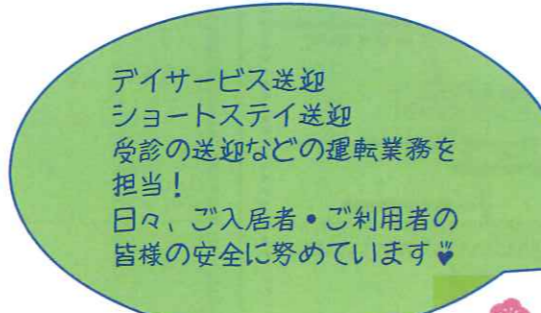 デイサービス送迎
ショートステイ送迎
受診の送迎などの運転業務を
担当！
日々、ご入居者・ご利用者の
皆様の安全に努めています♥